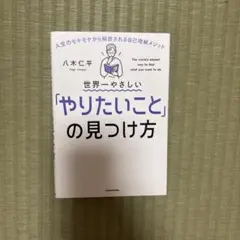 人生のモヤモヤから解放される自己理解メソッド
八木仁平
Yagi Jimpei
The world's easiest
way to find
what you want to do
世界一やさしい
「やりたいこと」
の見つけ方
KADOKAWA